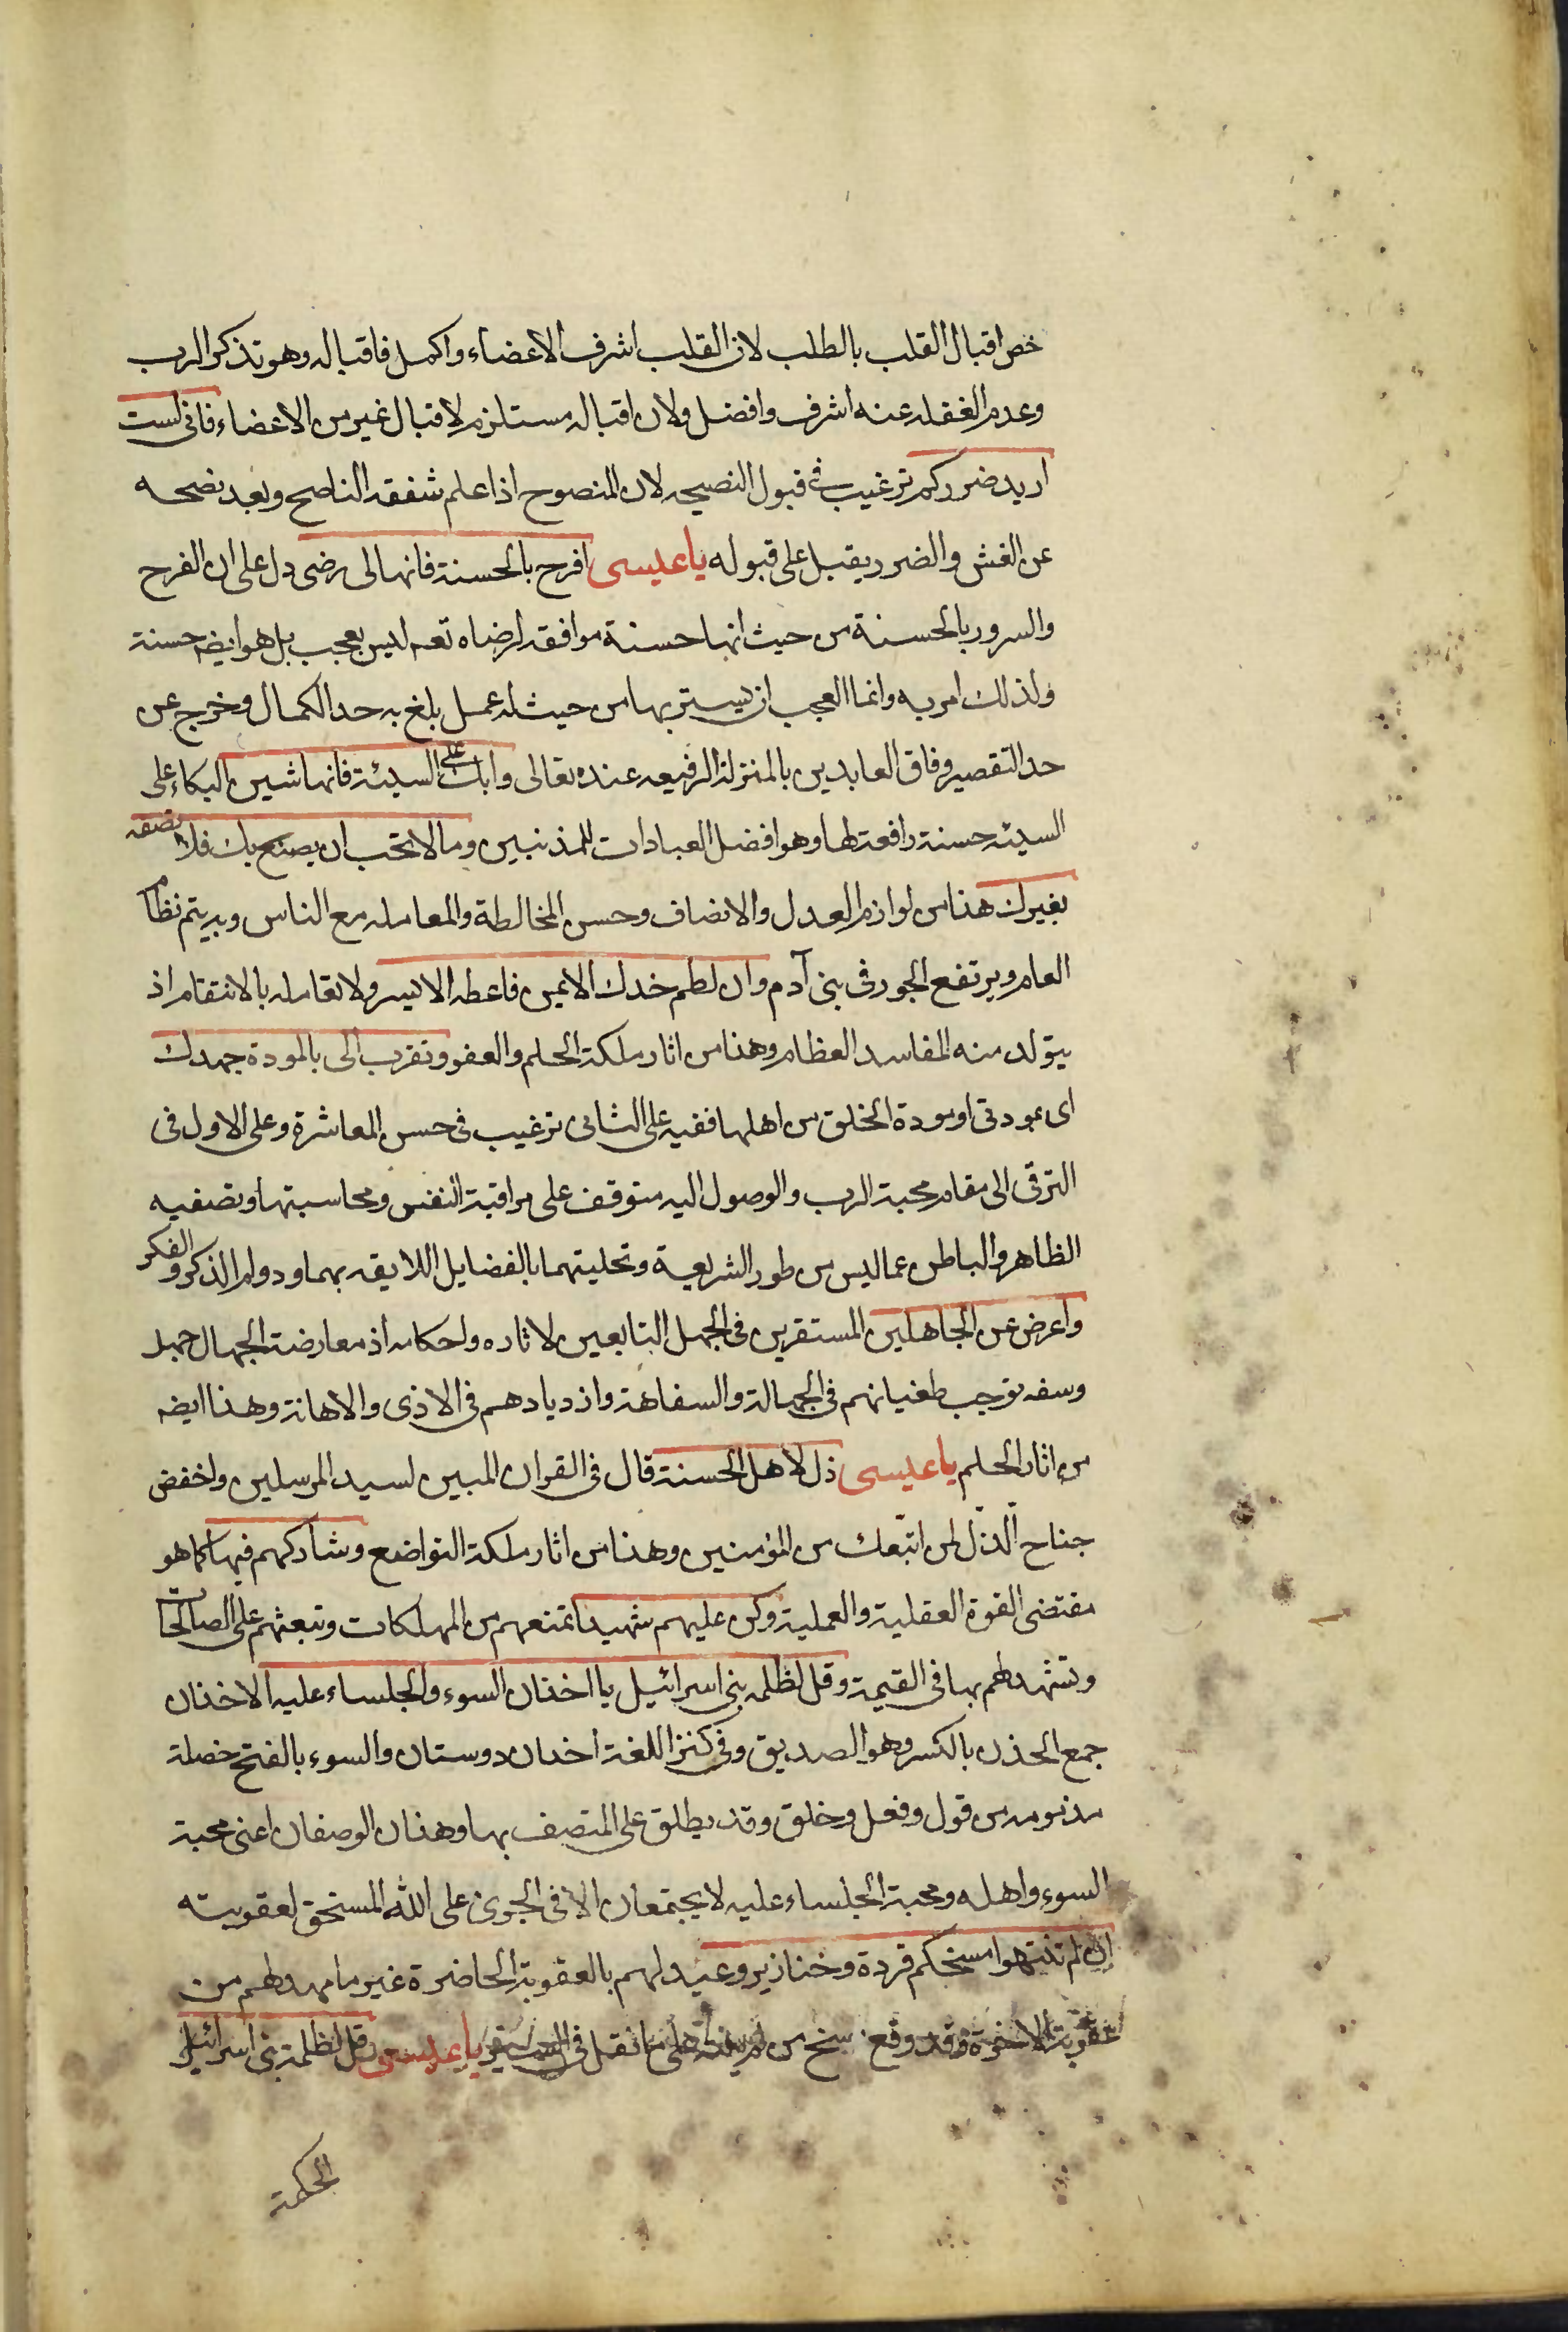 خص اقبال القلب بالطلب لان القلب اشرف الاعضاء واكمل فاقباله وهو تذكر الرب
وعدم الغفله عنه اشرف وافضل ولان اقباله مستلزم لاقبال غيره من الاعضاء فانى لست
اريد ضرركم ترغيب فى قبول النصيحه لان المنصوح اذا علم شفقه الناصح وبعد نصحه
عن الغش والضرر يقبل على قبوله يا عيسى افرح بالحسنة فانها لى رضى دل على ان الفرح
والسرور بالحسنة من حيث انها حسنة موافقه لرضاه تعه ليس بعجب بل هو ايضه حسنة
ولذلك امر به وانما العجب ان يستر بها من حيث انه عمل بلغ به حد الكمال وخرج عن
حد التقصير وفاق العابدين بالمنزلة الرفيعه عنده تعالى وابك على السيئة فانها شين البكاء على
السيئه حسنة رافعة لها وهو افضل العبادات للمذنبين وما لا تحب ان يصنع بك فلا تصنعه
بغيرك هذا من لوازم العدل والانصاف وحسن المخالطة والمعامله مع الناس وبه يتم نظام
العالم ويرتفع الجور فى بنى آدم وان لطم خدك الايمن فاعطه الايسر ولا تعامله بالانتقام اذ
يتولد منه المفاسد العظام وهذا من اثار ملكة الحلم والعفو وتقرب الى بالمودة جهدك
اى بمودتى او مودة الخلق من اهلها ففيه على الثانى ترغيب فى حسن المعاشرة وعلى الاول فى
الترقى الى مقام محبة الرب والوصول اليه متوقف على مراقبة النفس ومحاسبتها وتصفيه
الظاهر والباطن عما ليس من طور الشريعة وتحليتهما بالفضايل اللايقه بهما ودوام الذكر والفكر
واعرض عن الجاهلين المستقرين فى الجهل التابعين لاثاره واحكامه اذ معارضة الجهال جهل
وسفه توجب طغيانهم فى الجهالة والسفاهة وازديادهم فى الاذى والاهانة وهذا ايضه
من اثار الحلم يا عيسى ذل لاهل الحسنة قال فى القران المبين لسيد المرسلين واخفض
جناح الذل لمن اتبعك من المؤمنين وهذا من اثار ملكة التواضع وشاركهم فيها كما هو
مقتضى القوة العقلية والعملية وكن عليهم شهيدا تمنعهم من المهلكات وتبعثهم على الصالحات
وتشهد لهم بها فى القيمة وقل لظلمه بنى اسرائيل يا اخذان السوء والجلساء عليه الاخذان
جمع الخذن بالكسر وهو الصديق وفى كنز اللغة اخدان دوستان والسوء بالفتح خصلة
مذمومه من قول وفعل وخلق وقد يطلق على المتصف بها وهذان الوصفان اعنى محبة
السوء واهله ومحبة الجلساء عليه لا يجتمعان الا فى الجرى على الله المستحق لعقوبته
ان لم تنتهوا امسخكم قردة وخنازير وعيد لهم بالعقوبة الحاضرة غير ما مهد لهم من
عقوبة الاخرة وقد وقع مسخ من لم ينته على ما نقل فى يا عيسى قل لظلمة بنى اسرائيل
الحكمة